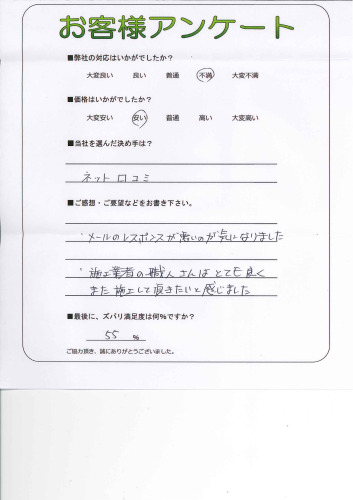 お客様アンケート
■弊社の対応はいかがでしたか?
大変良い 良い 普通 不満 大変不満
■価格はいかがでしたか?
大変安い 安い 普通 高い 大変高い
■当社を選んだ決め手は?
ネット口コミ
■ご感想・ご要望などをお書き下さい。
・メールのレスポンスが悪いのが気になりました
・施工業者の職人さんはとても良く
また施工して頂きたいと感じました
■最後に、ズバリ満足度は何%ですか?
55 %
ご協力頂き、誠にありがとうございました。